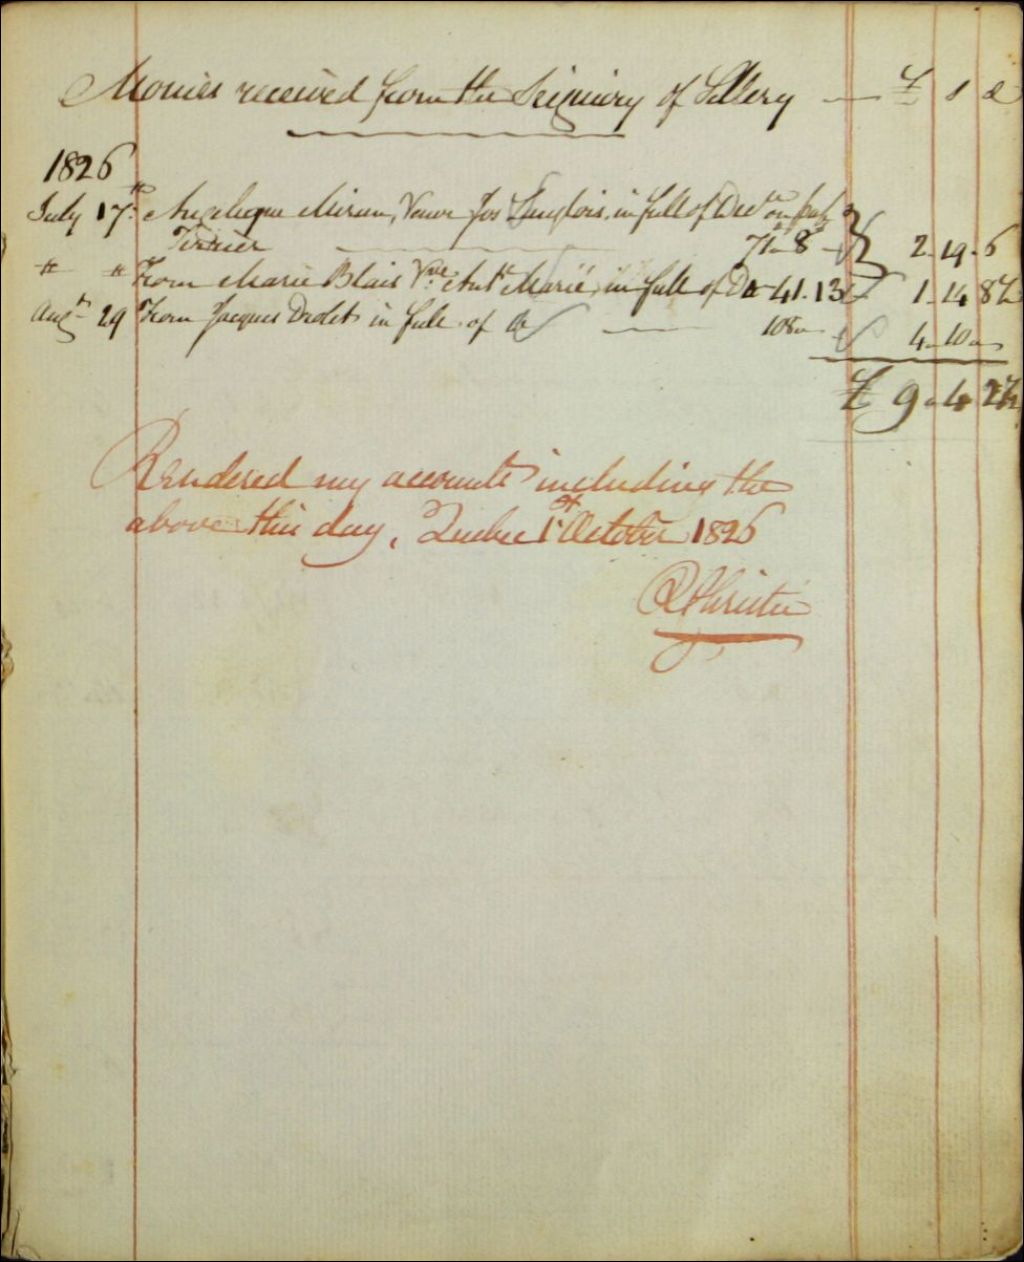 Monies received from the Seigniory of Sillery — £ s d
1826
July 17th Angelique Miran, Veuve Jos Langlois, in full of Dues on
Terrier — 71 - 8 - 2 - 19 - 6
" " From Marie Blais Vve Ant Marié in full of Do 41 - 13 1 - 14 8½
Augt 29 From Jacques Drolet in full of Do — 108 4 - 10 -
£ 9 - 4 2½
Rendered my accounts including the
above this day, Quebec 1st October 1826
R Christie